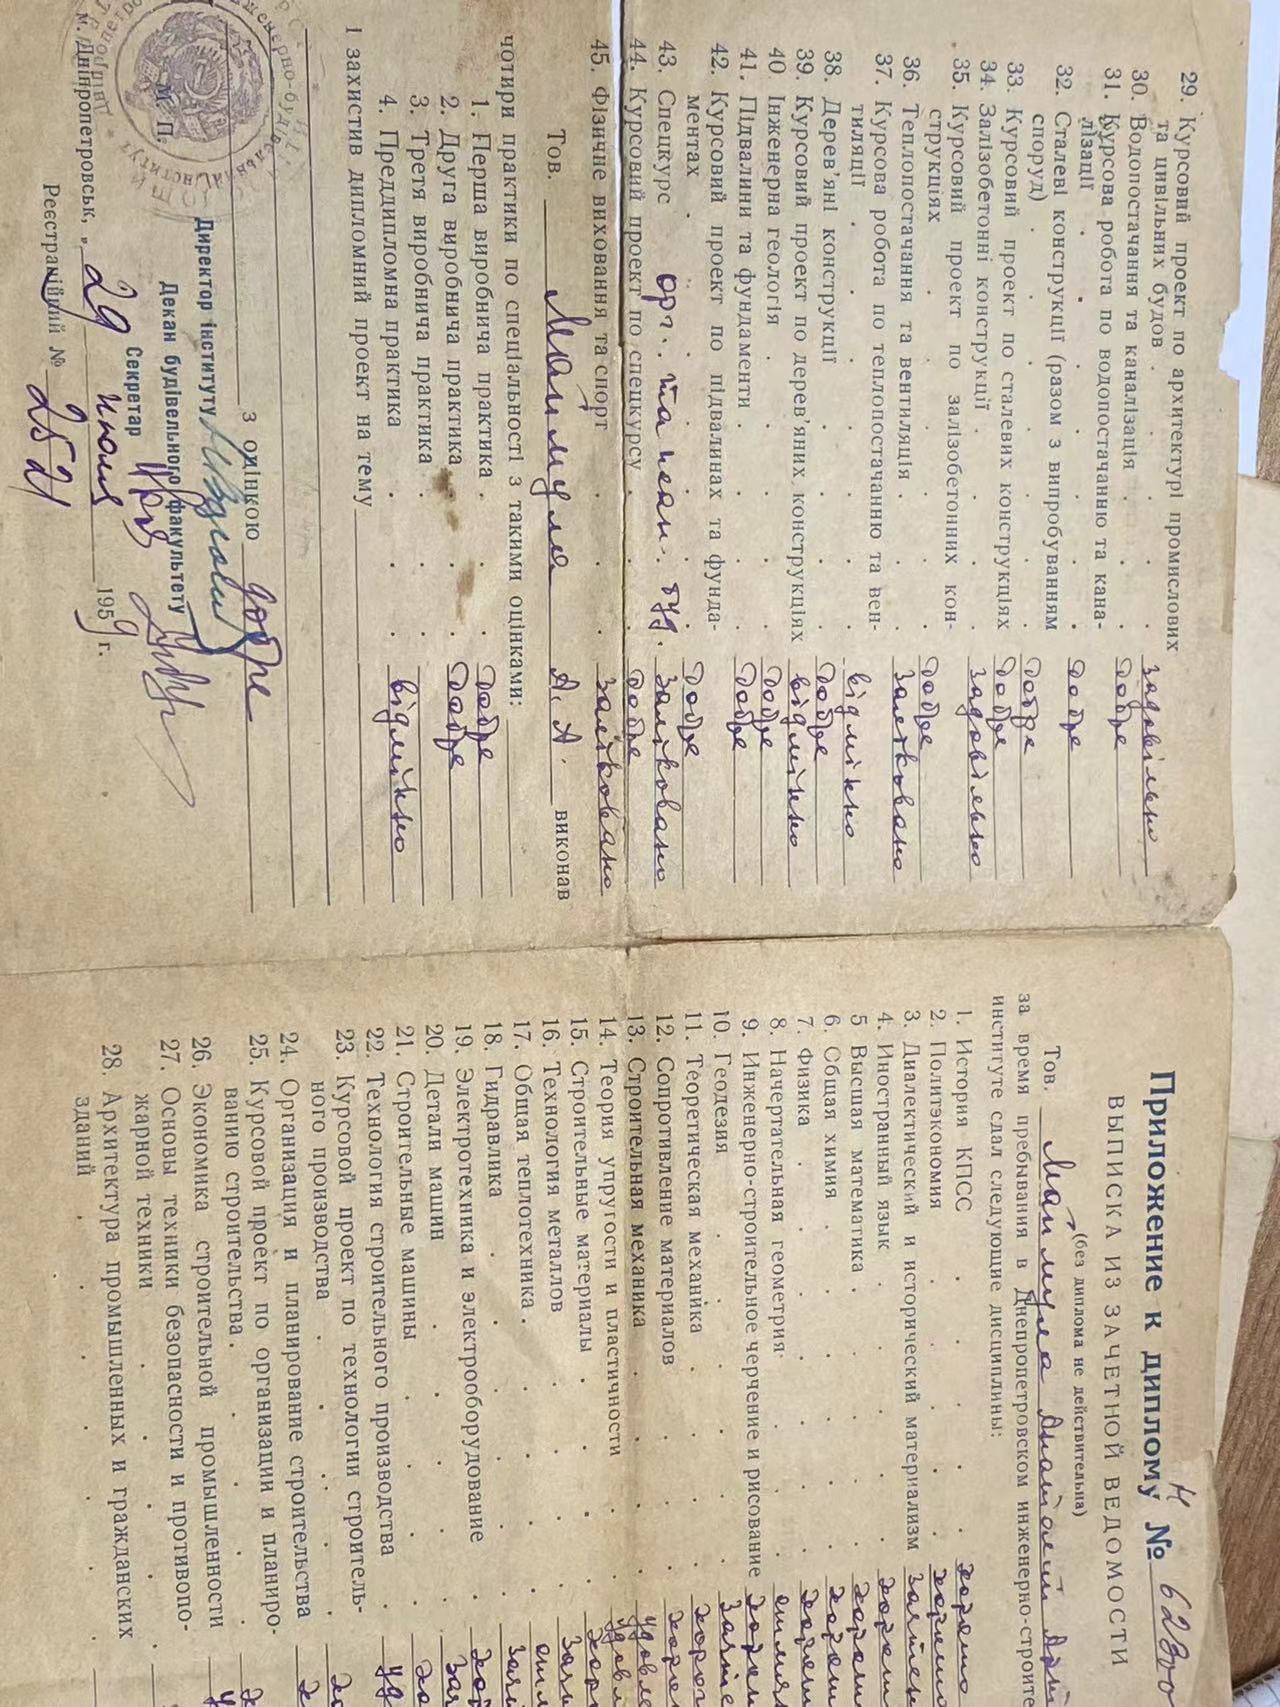 29. Курсовий проект по архитектурі промислових
та цивільних будов . . . задовільно
30. Водопостачання та каналізація . . . добре
31. Курсова робота по водопостачанню та кана-
лізації . . . . добре
32. Сталеві конструкції (разом з випробуванням
споруд) . . . . добре
33. Курсовий проект по сталевих конструкціях добре
34. Залізобетонні конструкції . . . задовільно
35. Курсовий проект по залізобетонних кон-
струкціях . . . . добре
36. Теплопостачання та вентиляція . . . зараховано
37. Курсова робота по теплопостачанню та вен-
тиляції . . . . відмінно
38. Дерев'яні конструкції . . . добре
39. Курсовий проект по дерев'яних конструкціях відмінно
40 Інженерна геологія . . . добре
41. Підвалини та фундаменти . . . добре
42. Курсовий проект по підвалинах та фунда-
ментах . . . . добре
43. Спецкурс орг. та буд. зараховано
44. Курсовий проект по спецкурсу . . . добре
45. Фізичне виховання та спорт . . . зараховано
Тов. А. А. виконав
чотири практики по спеціальності з такими оцінками:
1. Перша виробнича практика . . . добре
2. Друга виробнича практика . . . добре
3. Третя виробнича практика . . .
4. Преддипломна практика . . . відмінно
І захистив дипломний проект на тему
з оцінкою добре
Директор інституту
Декан будівельного факультету
Секретар
М. П.
м. Дніпропетровськ, „ 29 июня 1959 г.
Реєстраційний № 2521
Приложение к диплому № 6280
(без диплома не действительна)
ВЫПИСКА ИЗ ЗАЧЕТНОЙ ВЕДОМОСТИ
Тов. Анатолий
за время пребывания в Днепропетровском инженерно-строите
институте сдал следующие дисциплины:
1. История КПСС . . . хорошо
2. Политэкономия . . . хорошо
3. Диалектический и исторический материализм
4. Иностранный язык . . .
5 Высшая математика . . .
6. Общая химия . . .
7. Физика . . .
8. Начертательная геометрия . . .
9. Инженерно-строительное черчение и рисование
10. Геодезия . . .
11. Теоретическая механика . . .
12. Сопротивление материалов . . .
13. Строительная механика . . .
14. Теория упругости и пластичности . . .
15. Строительные материалы . . .
16. Технология металлов . . .
17. Общая теплотехника . . .
18. Гидравлика . . .
19. Электротехника и электрооборудование
20. Детали машин . . .
21. Строительные машины . . .
22. Технология строительного производства
23. Курсовой проект по технологии строитель-
ного производства . . .
24. Организация и планирование строительства
25. Курсовой проект по организации и планиро-
ванию строительства . . .
26. Экономика строительной промышленности
27. Основы техники безопасности и противопо-
жарной техники . . .
28. Архитектура промышленных и гражданских
зданий . . .